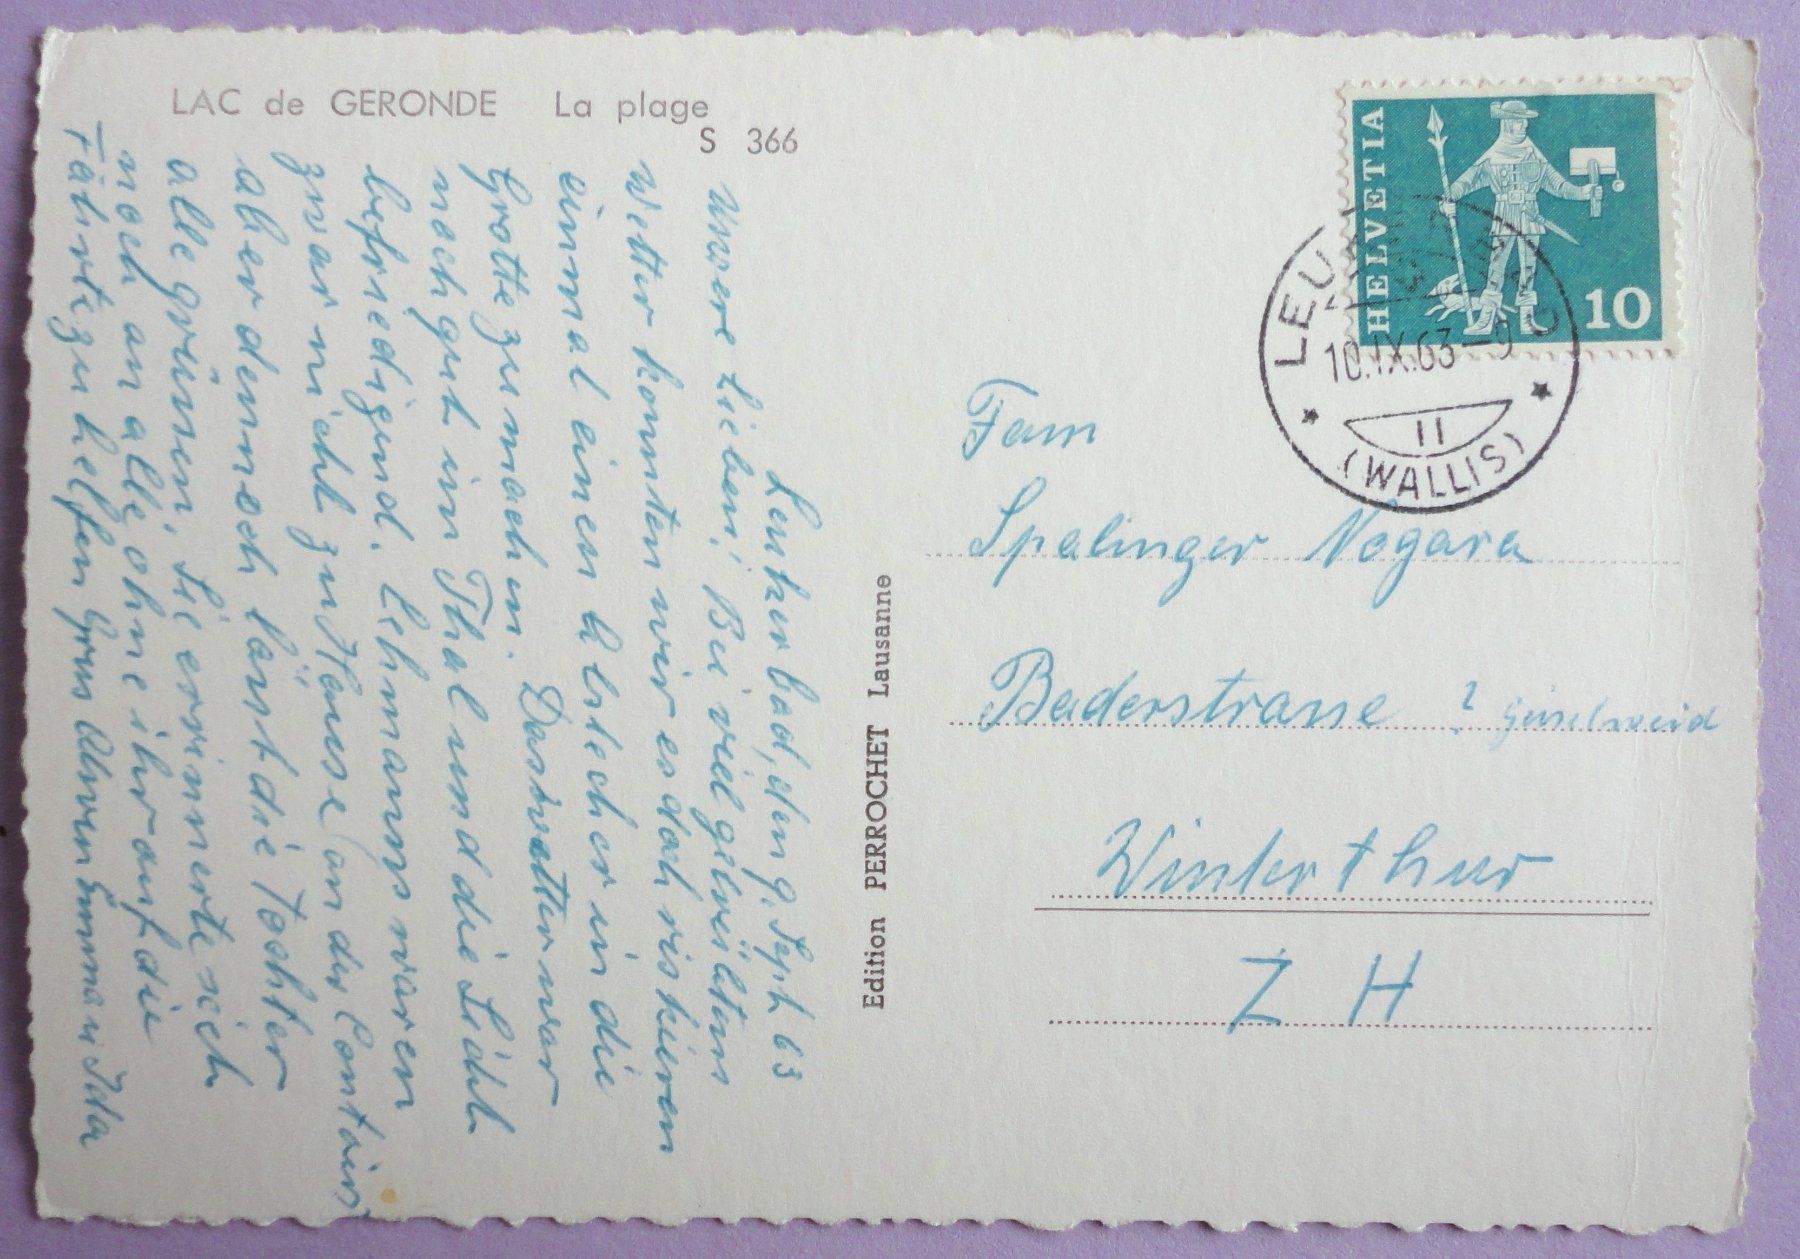 LAC de GERONDE La plage
S 366
Leukerbad, den 9. Sept 63
Unsere Lieben! Bei viel geweiltem
Wetter konnten wir es doch riskieren
einmal einen Abstecher in die
Grotte zu machen. Das Wetter war
noch gut im Thal und die Sicht
befriedigend. Lehmanns waren
zwar nicht zu Hause (an der Contoir
aber dennoch lässt die Tochter
alle grüssen, Sie erinnerte sich
noch an alle ohne ihr auf die
Fährte zu helfen Gruss Alwin Emma u Ida
Edition PERROCHET Lausanne
HELVETIA
10
LEUK
10.IX.63-9
11
(WALLIS)
Fam
Spalinger Nogara
Baderstrasse ? Geiselweid
Winterthur
Z H